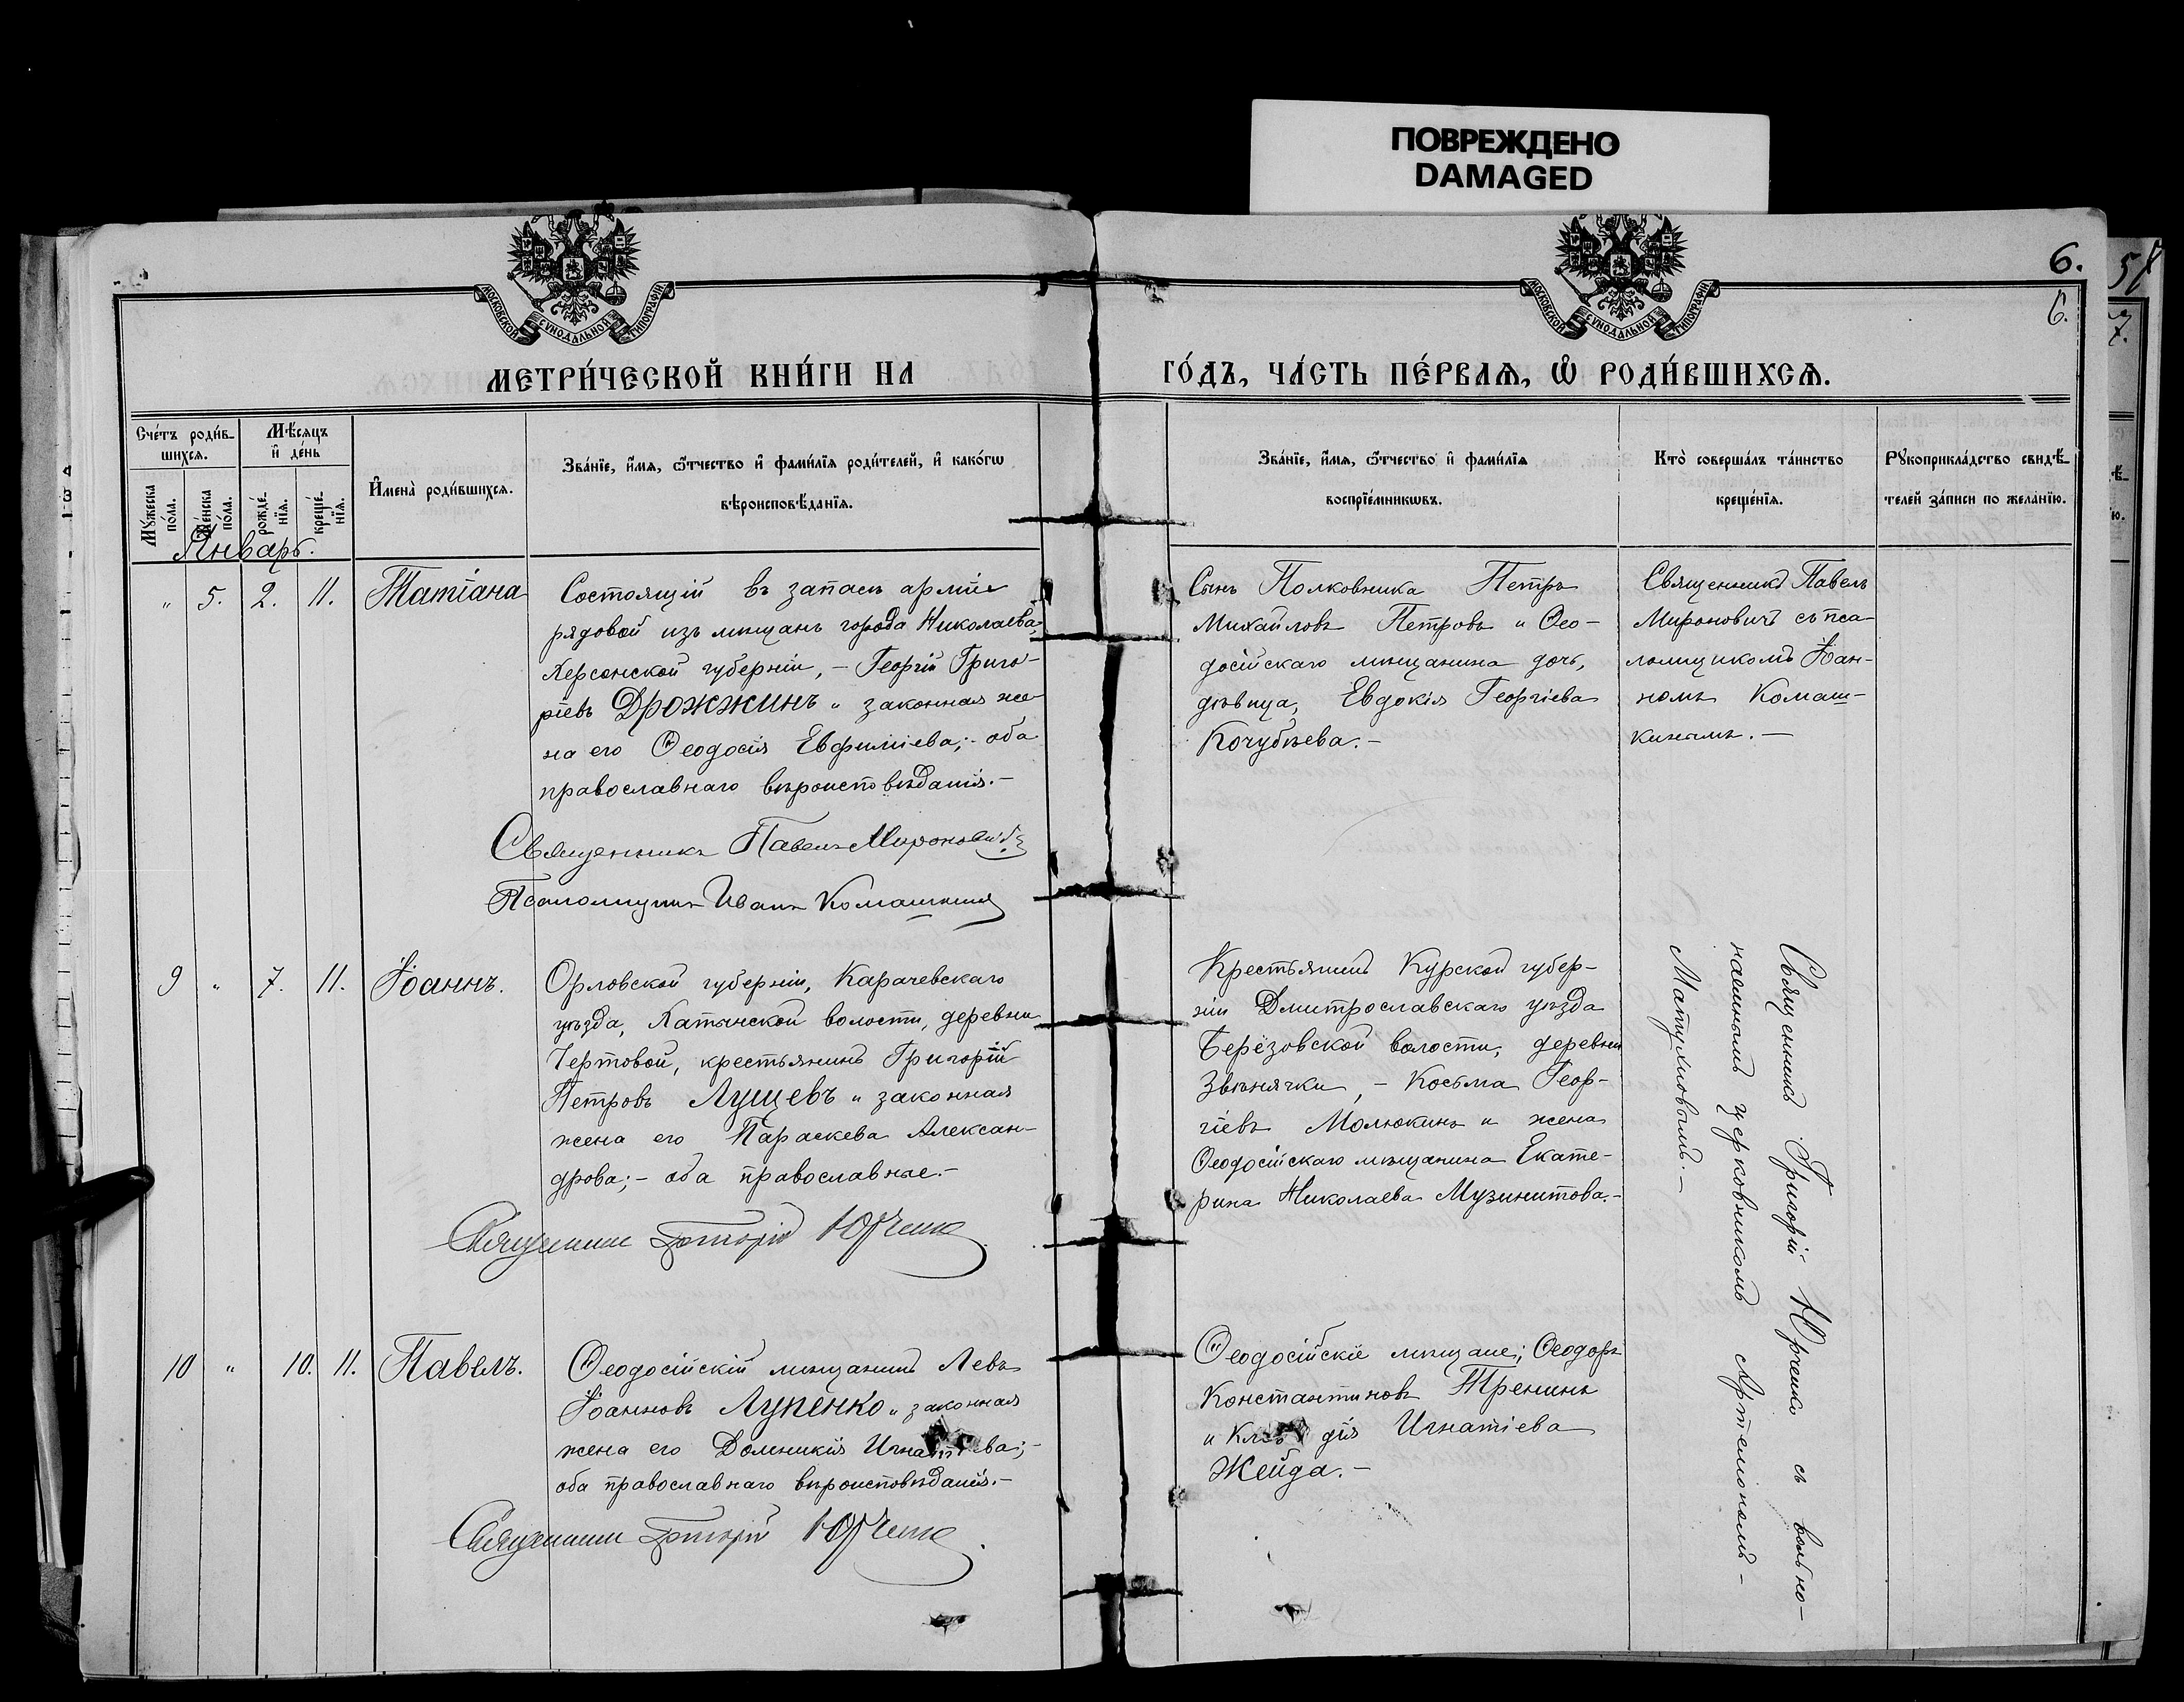 ПОВРЕЖДЕНО
DAMAGED
МОСКОВСКОЙ СѴНОДАЛЬНОЙ ТИПОГРАФІИ
МОСКОВСКОЙ СѴНОДАЛЬНОЙ ТИПОГРАФІИ
6.
57
6.
7.
МЕТРИ́ЧЕСКОЙ КНИ́ГИ НА
ГО́ДЪ, ЧА́СТЬ ПЕ́РВАѦ, Ѡ҆ РОДИ́ВШИХСѦ.
Сче́тъ роди́в-
шихсѧ.
Мѣ́сѧцъ
и҆ де́нь
Мꙋ́жеска
по́ла.
Же́нска
по́ла.
рожде́-
нїѧ.
креще́-
нїѧ.
И҆мена̀ роди́вшихсѧ.
Зва́нїе, и҆́мѧ, ѻ҆́тчество и҆ фами́лїѧ роди́телей, и҆ како́гѡ
вѣроисповѣ́данїѧ.
Зва́нїе, и҆́мѧ, ѻ҆́тчество и҆ фами́лїѧ
воспрїе́мникѡвъ.
Кто̀ соверша́лъ та́инство
креще́нїѧ.
Рꙋкоприкла́дство свидѣ́-
телей за́писи по жела́нїю.
Январь.
„ 5. 2. 11. Татіана
Состоящій въ запасѣ арміи
рядовой изъ мѣщанъ города Николаева,
Херсонской губерніи, – Георгій Григо-
ріевъ Дрожжинъ и законная же-
на его Ѳеодосія Евфиміева; – оба
православнаго вѣроисповѣданія. –
Священникъ Павелъ Мироновичъ
Псаломщикъ Иванъ Комашкинъ
Сынъ Полковника Петръ
Михайловъ Петровъ и Ѳео-
досійскаго мѣщанина дочь,
дѣвица, Евдокія Георгіева
Кочубѣева. –
Священникъ Павелъ
Мироновичъ съ пса-
ломщикомъ Іоан-
номъ Комаш-
кинымъ. –
9 „ 7. 11. Іоаннъ.
Орловской губерніи, Карачевскаго
уѣзда, волости, деревни
Чертовой, крестьянинъ Григорій
Петровъ Лущевъ и законная
жена его Параскева Алексан-
дрова; – оба православные. –
Священникъ Григорій Юрченко
Крестьянинъ Курской губер-
ніи Дмитрославскаго уѣзда
Берёзовской волости, деревни
Звѣнячки, – Косьма Геор-
гіевъ Молюкинъ и жена
Ѳеодосійскаго мѣщанина Екате-
рина Николаева. –
Священникъ Григорій Юрченко съ вольно-
наемнымъ церковникомъ Артеміономъ –
Матухновымъ. –
10 „ 10. 11. Павелъ.
Ѳеодосійскій мѣщанинъ Левъ
Іоанновъ Лупенко и законная
жена его Домникія Игнатіева; –
оба православнаго вѣроисповѣданія. –
Священникъ Григорій Юрченко
Ѳеодосійскіе мѣщане; Ѳеодоръ
Константиновъ Тренинъ
и Клавдія Игнатіева
Жейда. –